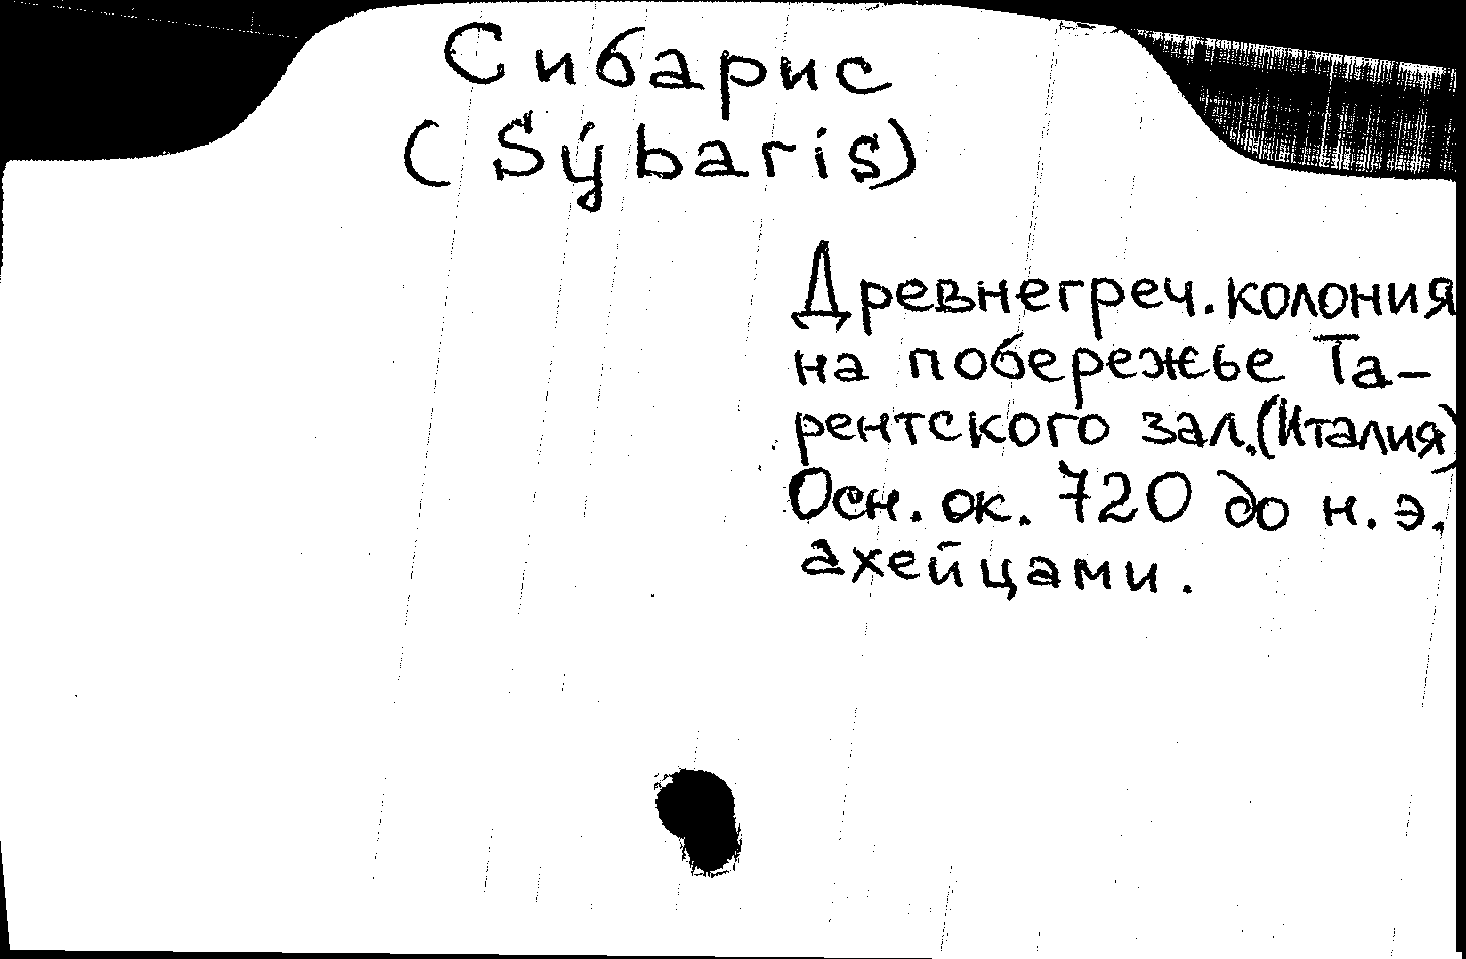 Сибарис
(Sýbaris)
Древнегреч. колония
на побережье Та-
рентского зал. (Италия)
Осн. ок. 720 до н. э.
ахейцами.